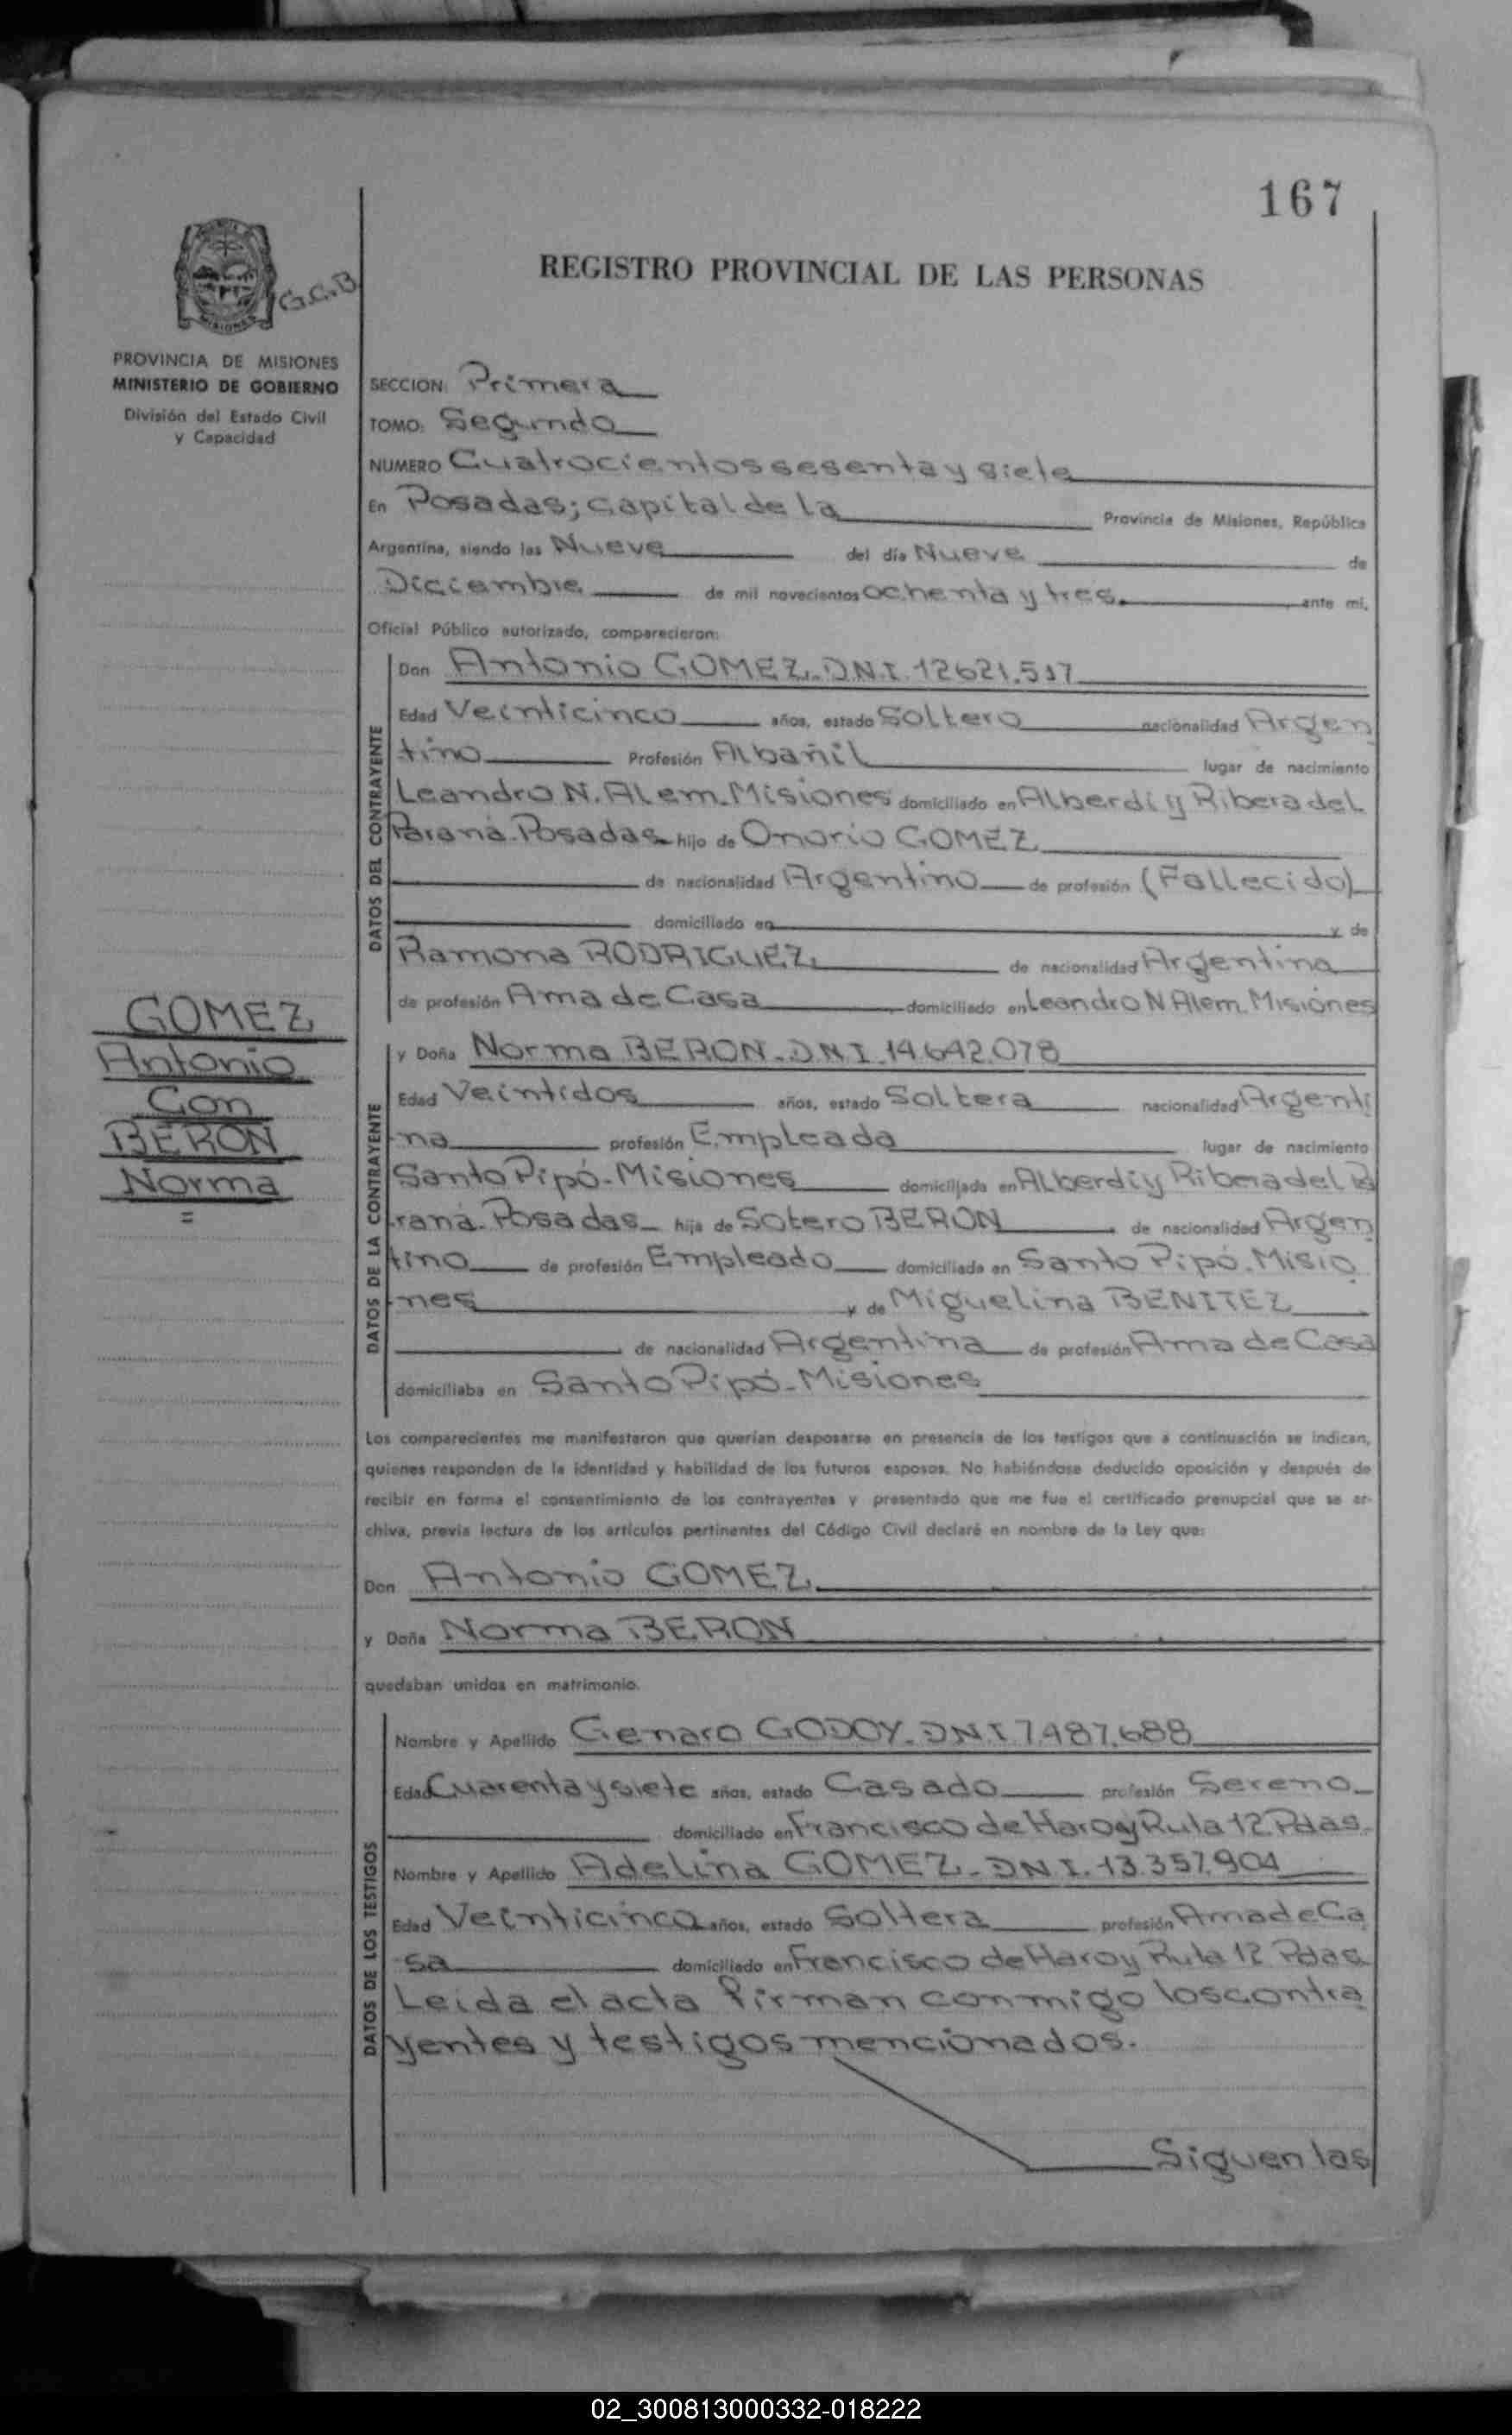 167
REGISTRO PROVINCIAL DE LAS PERSONAS
MISIONES
G.C.B
PROVINCIA DE MISIONES
MINISTERIO DE GOBIERNO
División del Estado Civil
y Capacidad
SECCION: Primera
TOMO: Segundo
NUMERO Cuatrocientos sesenta y siete
En Posadas; capital de la Provincia de Misiones, República
Argentina, siendo las Nueve del día Nueve de
Diciembre de mil novecientos ochenta y tres. ante mi,
Oficial Público autorizado, comparecieron:
DATOS DEL CONTRAYENTE
Don Antonio GOMEZ. D.N.I. 12621.517
Edad Veinticinco años, estado Soltero nacionalidad Argen
tino Profesión Albañil lugar de nacimiento
Leandro N. Alem. Misiones domiciliado en Alberdi y Ribera del
Paraná. Posadas hijo de Onorio GOMEZ
de nacionalidad Argentino de profesión (Fallecido)
domiciliado en y de
Ramona RODRIGUEZ de nacionalidad Argentina
de profesión Ama de Casa domiciliado en Leandro N Alem. Misiones
GOMEZ
Antonio
Con
BERON
Norma
=
DATOS DE LA CONTRAYENTE
y Doña Norma BERON. D.N.I. 14.642.078
Edad Veintidos años, estado Soltera nacionalidad Argenti
na profesión Empleada lugar de nacimiento
Santo Pipó-Misiones domiciliada en Alberdi y Ribera del Pa
raná. Posadas hija de Sotero BERON de nacionalidad Argen
tino de profesión Empleado domiciliado en Santo Pipó. Misio
nes y de Miguelina BENITEZ
de nacionalidad Argentina de profesión Ama de Casa
domiciliaba en Santo Pipó-Misiones
Los comparecientes me manifestaron que querían desposarse en presencia de los testigos que a continuación se indican,
quienes responden de la identidad y habilidad de los futuros esposos. No habiéndose deducido oposición y después de
recibir en forma el consentimiento de los contrayentes y presentado que me fue el certificado prenupcial que se ar-
chiva, previa lectura de los artículos pertinentes del Código Civil declaré en nombre de la Ley que:
Don Antonio GOMEZ
y Doña Norma BERON
quedaban unidos en matrimonio.
DATOS DE LOS TESTIGOS
Nombre y Apellido Genaro GODOY. DNI 7.487.688
Edad Cuarenta y siete años, estado Casado profesión Sereno
domiciliado en Francisco de Haro y Ruta 12 Pdas.
Nombre y Apellido Adelina GOMEZ. DNI. 13.357.904
Edad Veinticinco años, estado Soltera profesión Ama de Ca
sa domiciliado en Francisco de Haro y Ruta 12 Pdas.
Leida el acta firman conmigo los contra
yentes y testigos mencionados.
Siguen las
02_300813000332-018222